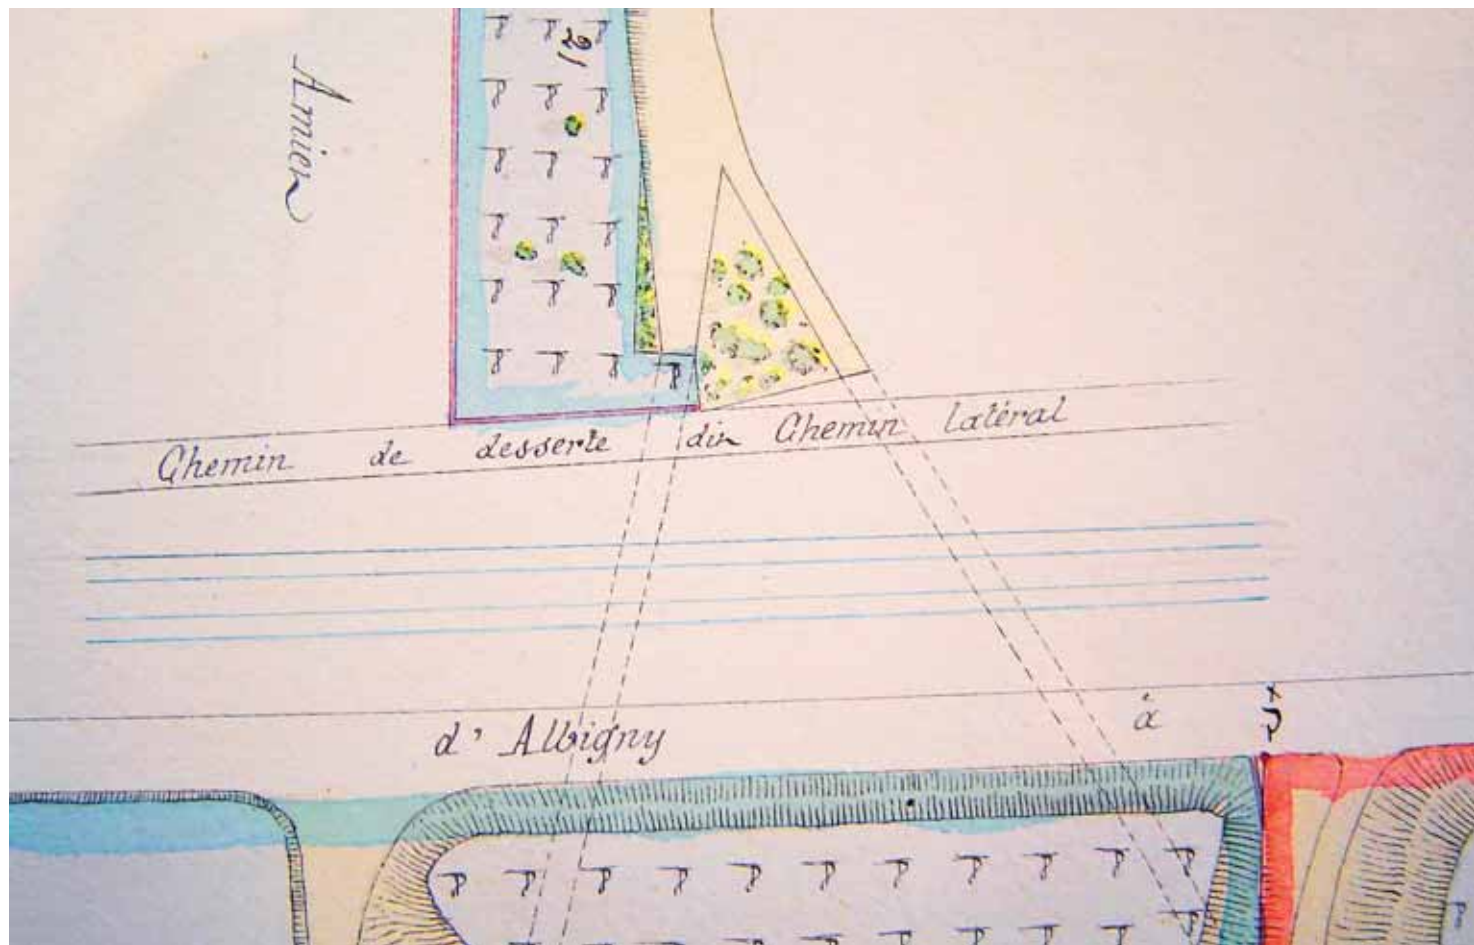 21
Amien
Chemin de desserte din Chemin latéral
d' Albigny à